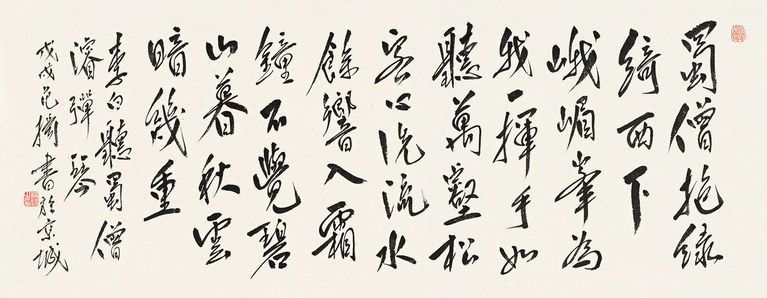 蜀僧抱綠
綺西下
峨嵋峯為
我一揮手如
聽萬壑松
客心洗流水
餘響入霜
鐘不覺碧
山暮秋雲
暗幾重
李白聽蜀僧
濬彈琴
戊戌范揚書於京城